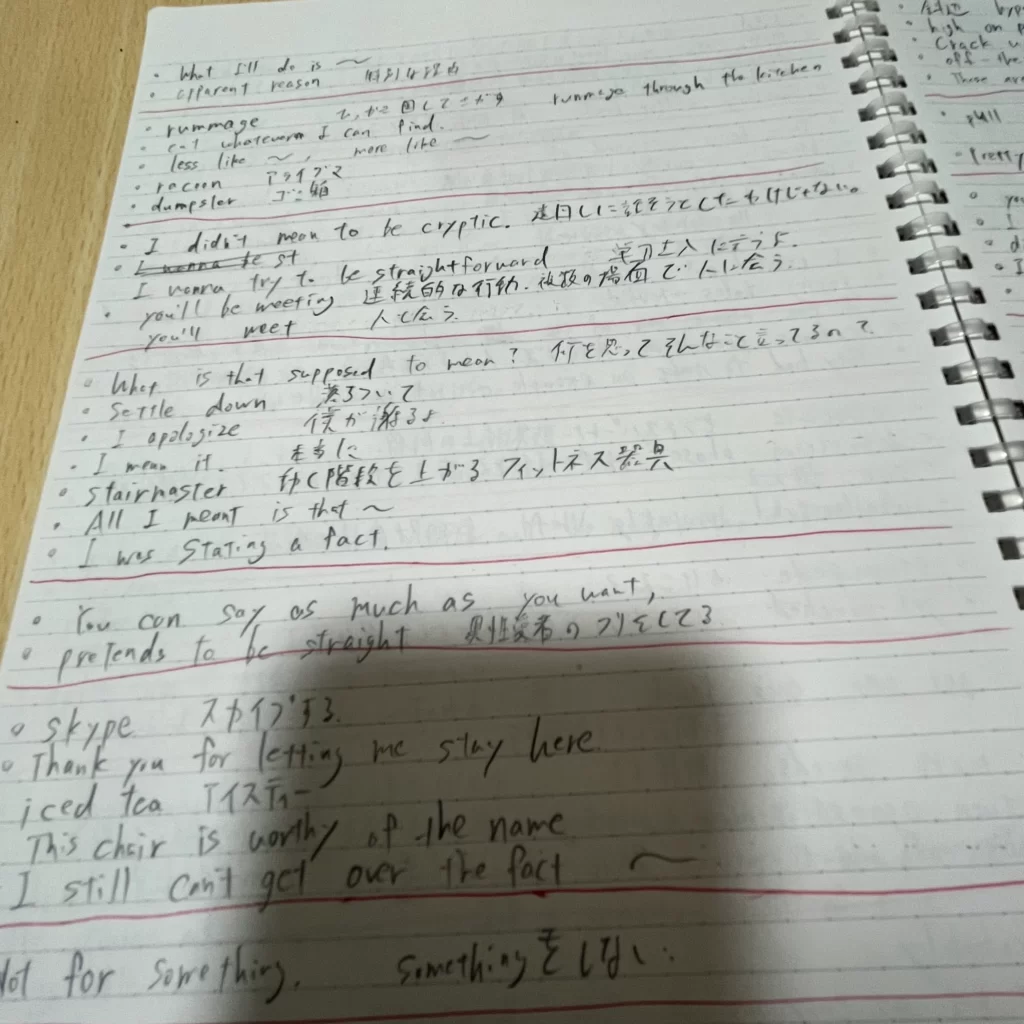 ・ What I'll do is ～
・ apparent reason 特別な理由
・ rummage ひっかき回してさがす rummage through the kitchen
・ eat whatever I can find.
・ less like ～, more like ～
・ racoon アライグマ
・ dumpster ゴミ箱
・ I didn't mean to be cryptic. 遠回しに話そうとしたわけじゃない。
・ I wanna be st
I wanna try to be straightforward 単刀直入に言うよ.
・ you'll be meeting 連続的な行動. 複数の場面で人に会う.
you'll meet 人に会う.
・ What is that supposed to mean? 何を思ってそんなこと言ってるの?
・ Settle down 落ちついて
・ I apologize 僕が謝るよ.
・ I mean it. 本当に
・ stairmaster 動く階段を上がるフィットネス器具
・ All I meant is that ～
・ I was stating a fact.
・ You can say as much as you want,
・ pretends to be straight 異性愛者のフリをしてる
・ skype スカイプする.
・ Thank you for letting me stay here.
iced tea アイスティー
This chair is worthy of the name
I still can't get over the fact ～
Not for something. somethingをしない.
斜辺
high on
Crack
off-the
These
pull
Pretty